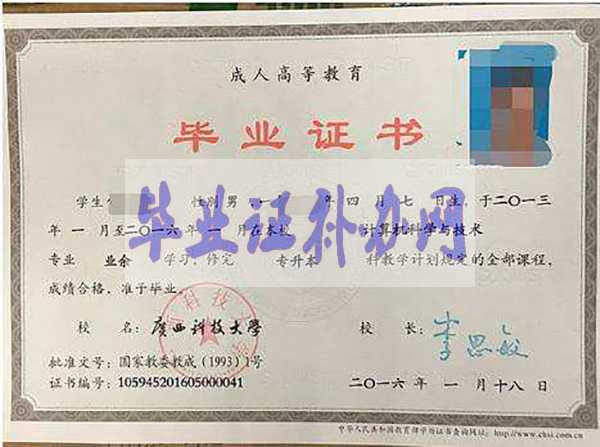 成人高等教育
毕业证书
学生 性别 男 年 四 月 七 日生，于二〇一三
年 一 月至二〇一六年 一 月在本校 计算机科学与技术
专业 业余 学习，修完 专升本 科教学计划规定的全部课程，
成绩合格，准于毕业。
毕业证补办网
校 名：广西科技大学 校 长：李思敏
批准文号：国家教委教成（1993）1号
证书编号：105945201605000041 二〇一六年 一 月十八日
中华人民共和国教育部学历证书查询网址：http://www.chsi.com.cn